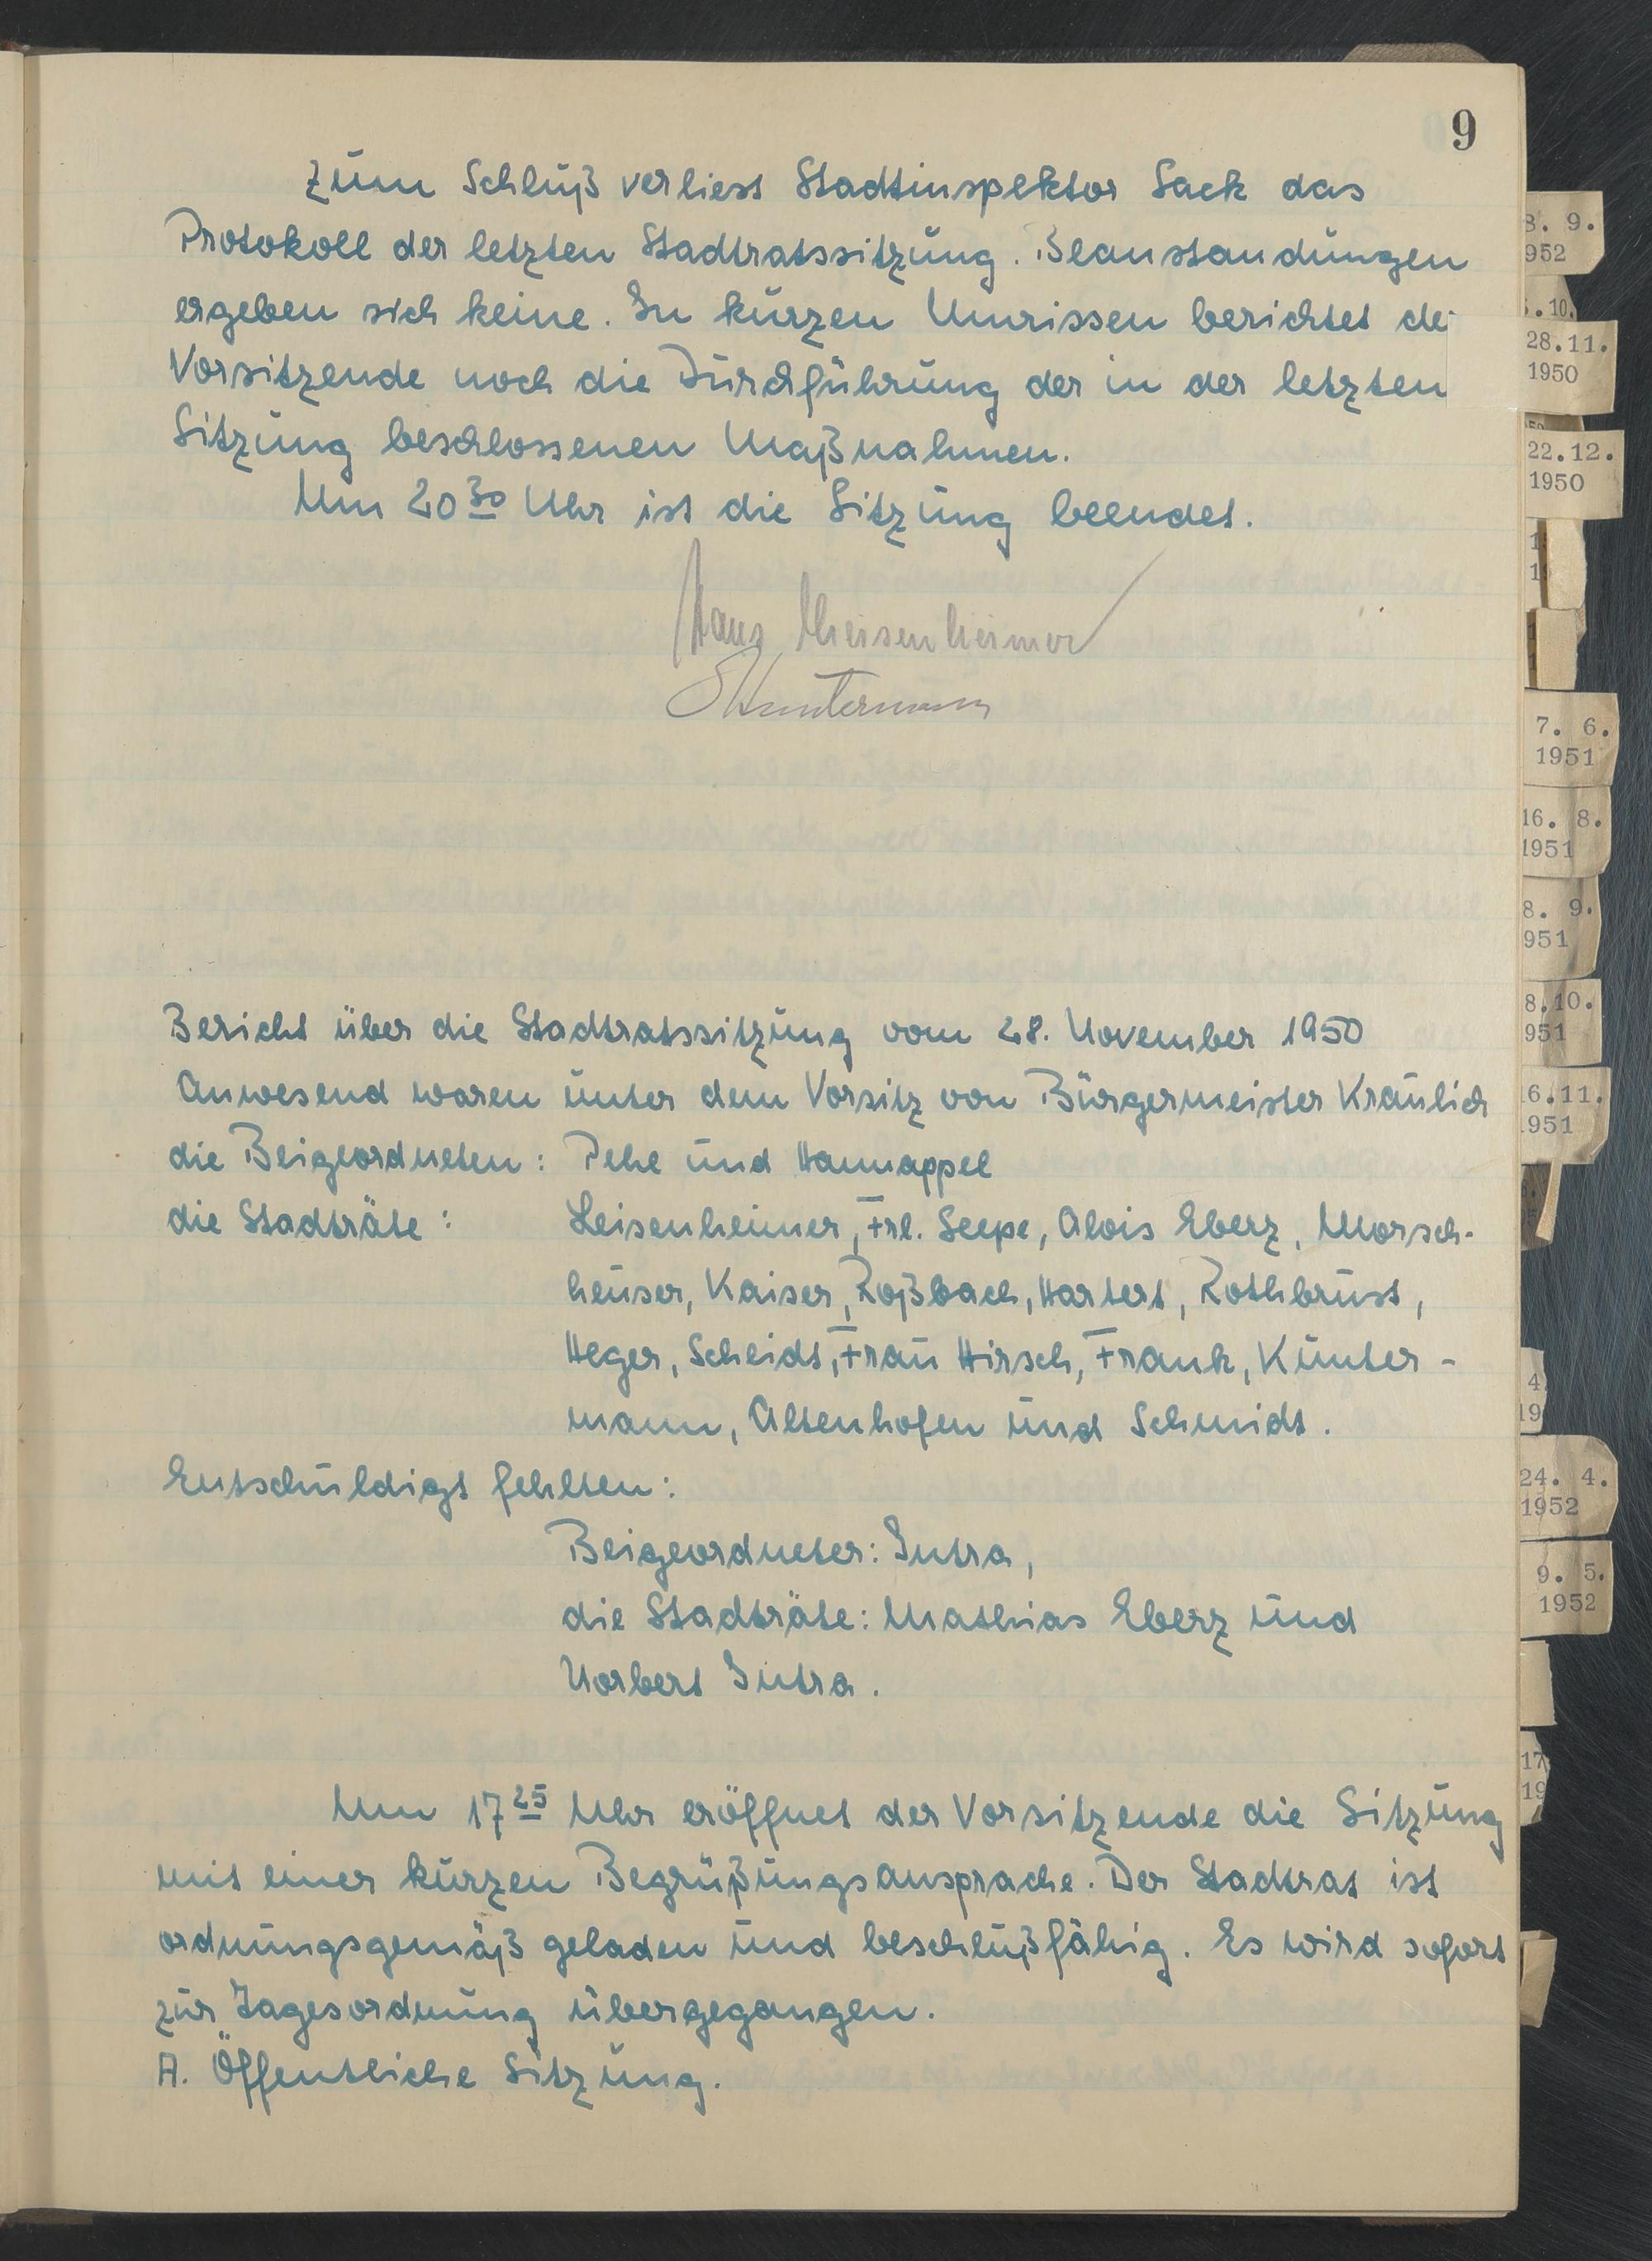 9
Zum Schluß verliest Stadtinspektor Sack das
Protokoll der letzten Stadtratssitzung. Beanstandungen
ergeben sich keine. In kurzen Umrissen berichtet de
Vorsitzende noch die Durchführung der in der letzten
Sitzung beschlossenen Maßnahmen.
Um 20 30 Uhr ist die Sitzung beendet.
Hans Meisenheimer
Kuntermann
Bericht über die Stadtratssitzung vom 28. November 1950
Anwesend waren unter dem Vorsitz von Bürgermeister Kraulich
die Beigeordneten: Pehl und Hannappel
die Stadträte: Leisenheimer, Frl. Seepe, Alois Eberz, Morsch-
heuser, Kaiser, Roßbach, Hartert, Rothbrust,
Heger, Scheidt, Frau Hirsch, Frank, Kunter-
mann, Altenhofen und Schmidt.
Entschuldigt fehlten:
Beigeordneter: Sutra,
die Stadträte: Mathias Eberz und
Norbert Sutra.
Um 17 25 Uhr eröffnet der Vorsitzende die Sitzung
mit einer kurzen Begrüßungsansprache. Der Stadtrat ist
ordnungsgemäß geladen und beschlußfähig. Es wird sofort
zur Tagesordnung übergegangen.
A. Öffentliche Sitzung.
8. 9.
952
.10.
28.11.
1950
22.12.
1950
7. 6.
1951
16. 8.
1951
8. 9.
951
8.10.
951
6.11.
1951
4
19
24. 4.
1952
9. 5.
1952
17
19